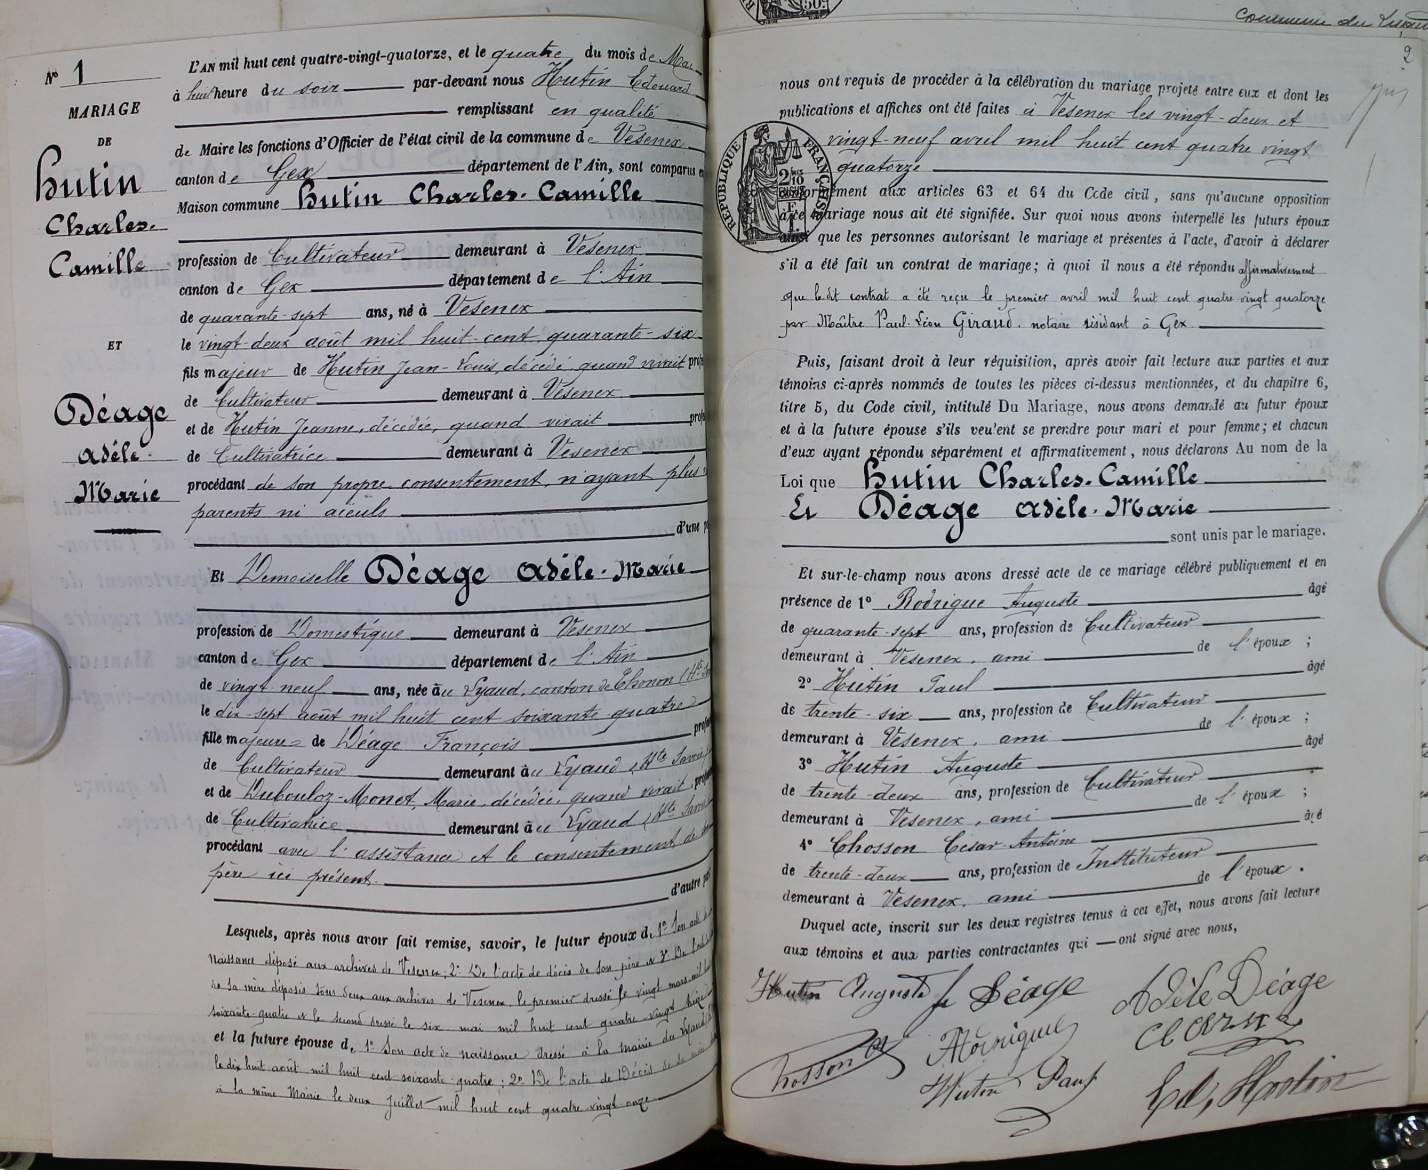 Nº 1
MARIAGE
DE
Hutin
Charles-
Camille
ET
Déage
Adèle-
Marie
L'AN mil huit cent quatre-vingt-quatorze, et le quatre du mois de Mai
à huit heure du soir par-devant nous Hutin Edouard
remplissant en qualité
de Maire les fonctions d'Officier de l'état civil de la commune de Vesenex
canton de Gex département de l'Ain, sont comparus en
Maison commune Hutin Charles-Camille
profession de Cultivateur demeurant à Vesenex
canton de Gex département de l'Ain
de quarante-sept ans, né à Vesenex
le vingt-deux août mil huit-cent quarante-six
fils majeur de Hutin Jean-Louis, décédé, quand vivait prof
de Cultivateur demeurant à Vesenex
et de Hutin Jeanne, décédée, quand vivait prof
de Cultivatrice demeurant à Vesenex
procédant de son propre consentement, n'ayant plus
parents ni aïeuls
d'une p
Et Demoiselle Déage Adèle-Marie
profession de Domestique demeurant à Vesenex
canton de Gex département de l'Ain
de vingt neuf ans, née au Lyaud, canton de Thonon (Hte
le dix-sept août mil huit cent soixante quatre
fille majeure de Déage François prof
de Cultivateur demeurant au Lyaud, Hte Savoie
et de Dubouloz-Monet, Marie, décédée, quand vivait, prof
de Cultivatrice demeurant au Lyaud, Hte Savoie
procédant avec l'assistance et le consentement de son
père ici présent.
d'autre part
Lesquels, après nous avoir fait remise, savoir, le futur époux de 1º Son acte de
naissance déposé aux archives de Vesenex; 2º De l'acte de décès de son père et 3º De
de sa mère déposés tous deux aux archives de Vesenex, le premier dressé le vingt mars mil
soixante-quatre et le second dressé le six mai mil huit cent quatre-vingt
et la future épouse de 1º Son acte de naissance dressé à la mairie du Lyaud
le dix huit août mil huit cent soixante-quatre; 2º De l'acte de Décès de sa
à la même Mairie le deux Juillet mil huit cent quatre vingt onze
Commune du
2
nous ont requis de procéder à la célébration du mariage projeté entre eux et dont les
publications et affiches ont été faites à Vesenex les vingt-deux et
vingt-neuf avril mil huit cent quatre vingt
quatorze
RÉPUBLIQUE FRANÇAISE
conformément aux articles 63 et 64 du Code civil, sans qu'aucune opposition
à ce mariage nous ait été signifiée. Sur quoi nous avons interpellé les futurs époux
ainsi que les personnes autorisant le mariage et présentes à l'acte, d'avoir à déclarer
s'il a été fait un contrat de mariage; à quoi il nous a été répondu affirmativement
que le dit contrat a été reçu le premier avril mil huit cent quatre vingt quatorze
par Maître Paul-Léon Giraud, notaire résidant à Gex.
Puis, faisant droit à leur réquisition, après avoir fait lecture aux parties et aux
témoins ci-après nommés de toutes les pièces ci-dessus mentionnées, et du chapitre 6,
titre 5, du Code civil, intitulé Du Mariage, nous avons demandé au futur époux
et à la future épouse s'ils veulent se prendre pour mari et pour femme; et chacun
d'eux ayant répondu séparément et affirmativement, nous déclarons Au nom de la
Loi que Hutin Charles-Camille
Et Déage Adèle-Marie
sont unis par le mariage.
Et sur-le-champ nous avons dressé acte de ce mariage célébré publiquement et en
présence de 1º Rodrigue Auguste âgé
de quarante-sept ans, profession de Cultivateur
demeurant à Vesenex, ami de l'époux;
2º Hutin Paul âgé
de trente-six ans, profession de Cultivateur
demeurant à Vesenex, ami de l'époux;
3º Hutin Auguste âgé
de trente-deux ans, profession de Cultivateur
demeurant à Vesenex, ami de l'époux;
4º Chosson César-Antoine âgé
de trente-deux ans, profession de Instituteur
demeurant à Vesenex, ami de l'époux.
Duquel acte, inscrit sur les deux registres tenus à cet effet, nous avons fait lecture
aux témoins et aux parties contractantes qui ont signé avec nous,
Hutin Auguste fr Déage Adèle Déage
Chosson A Rodrigue
Hutin Paul Ed, Hutin